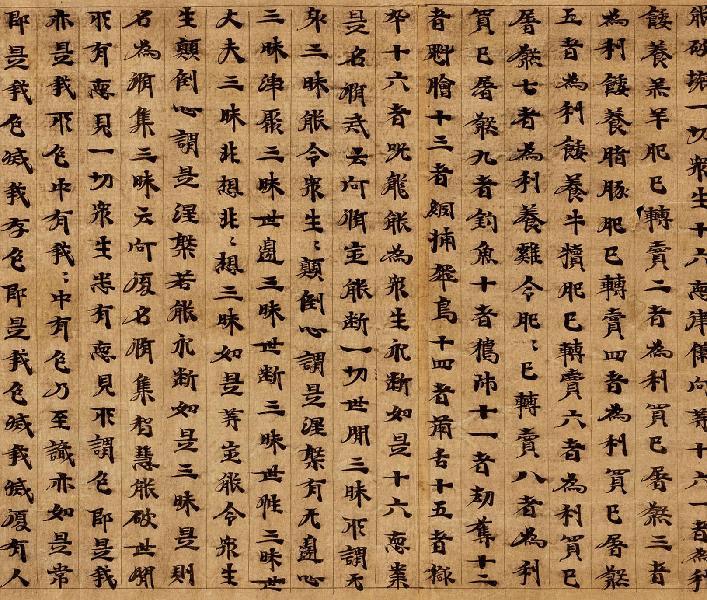 能破壞一切衆生十六惡律儀何等十六一者為利
餧養羔羊肥已轉賣二者為利買已屠煞三者
為利餧養猪豚肥已轉賣四者為利買已屠煞
五者為利餧養牛犢肥已轉賣六者為利買已
屠煞七者為利養雞令肥〻已轉賣八者為利
買已屠煞九者釣魚十者獵師十一者劫奪十二
者魁膾十三者網捕飛鳥十四者兩舌十五者獄
卒十六者呪龍能為衆生永斷如是十六惡業
是名脩戒云何脩定能斷一切世間三昧所謂无
身三昧能令衆生〻顛倒心謂是涅槃有无邊心
三昧淨聚三昧世邊三昧世斷三昧世性三昧世
丈夫三昧非想非〻想三昧如是等定能令衆生
生顛倒心謂是涅槃若能永斷如是三昧是則
名為脩集三昧云何復名脩集智慧能破世間
所有惡見一切衆生悉有惡見所謂色即是我
亦是我所色中有我〻中有色乃至識亦如是常
即是我色滅我存色即是我色滅我滅復有人